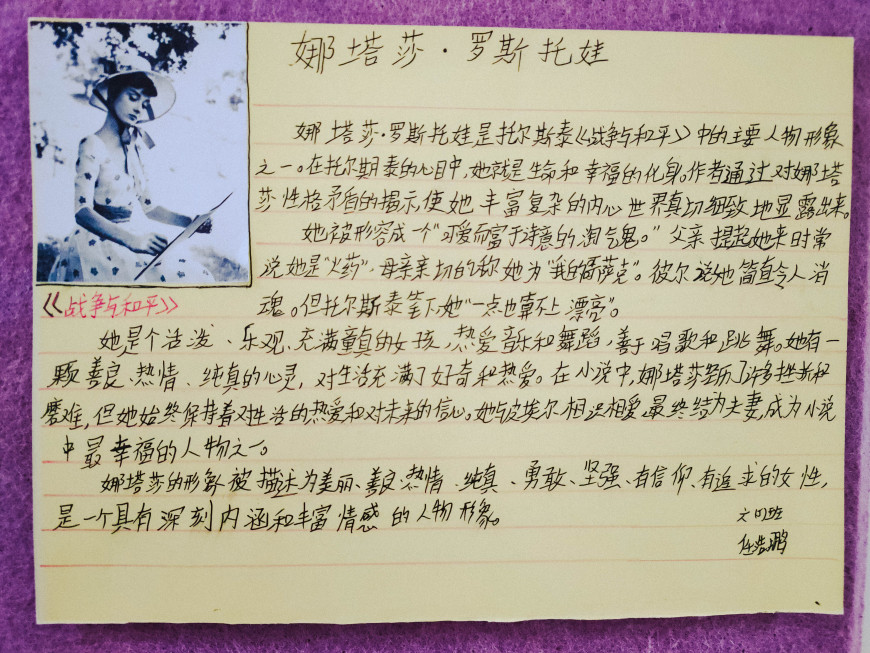 娜塔莎·罗斯托娃
娜塔莎·罗斯托娃是托尔斯泰《战争与和平》中的主要人物形象
之一。在托尔斯泰的心目中,她就是生命和幸福的化身。作者通过对娜塔
莎性格矛盾的揭示,使她丰富复杂的内心世界真切细致地显露出来。
她被形容成一个"可爱而富于诗意的淘气鬼。"父亲提起她来时常
说她是"火药",母亲亲切的称她为"我的哥萨克"。彼尔说她简直令人消
魂。但托尔斯泰笔下,她"一点也算不上漂亮"。
《战争与和平》
她是个活泼、乐观、充满童真的女孩,热爱音乐和舞蹈,善于唱歌和跳舞。她有一
颗善良、热情、纯真的心灵,对生活充满了好奇和热爱。在小说中,娜塔莎经历了许多挫折和
磨难,但她始终保持着对生活的热爱和对未来的信心。她与皮埃尔相识相爱最终结为夫妻,成为小说
中最幸福的人物之一。
娜塔莎的形象被描述为美丽、善良、热情、纯真、勇敢、坚强、有信仰、有追求的女性,
是一个具有深刻内涵和丰富情感的人物形象。
任浩鹏